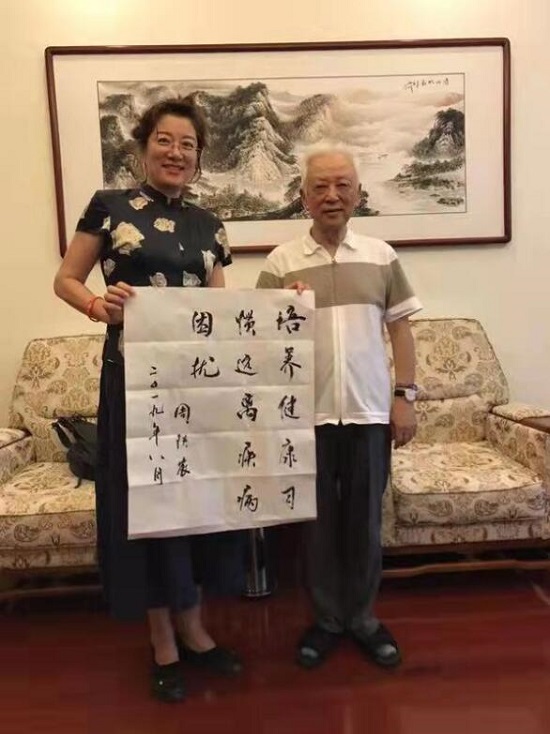 培养健康习
惯远离疾病
困扰
周
二〇一九年八月